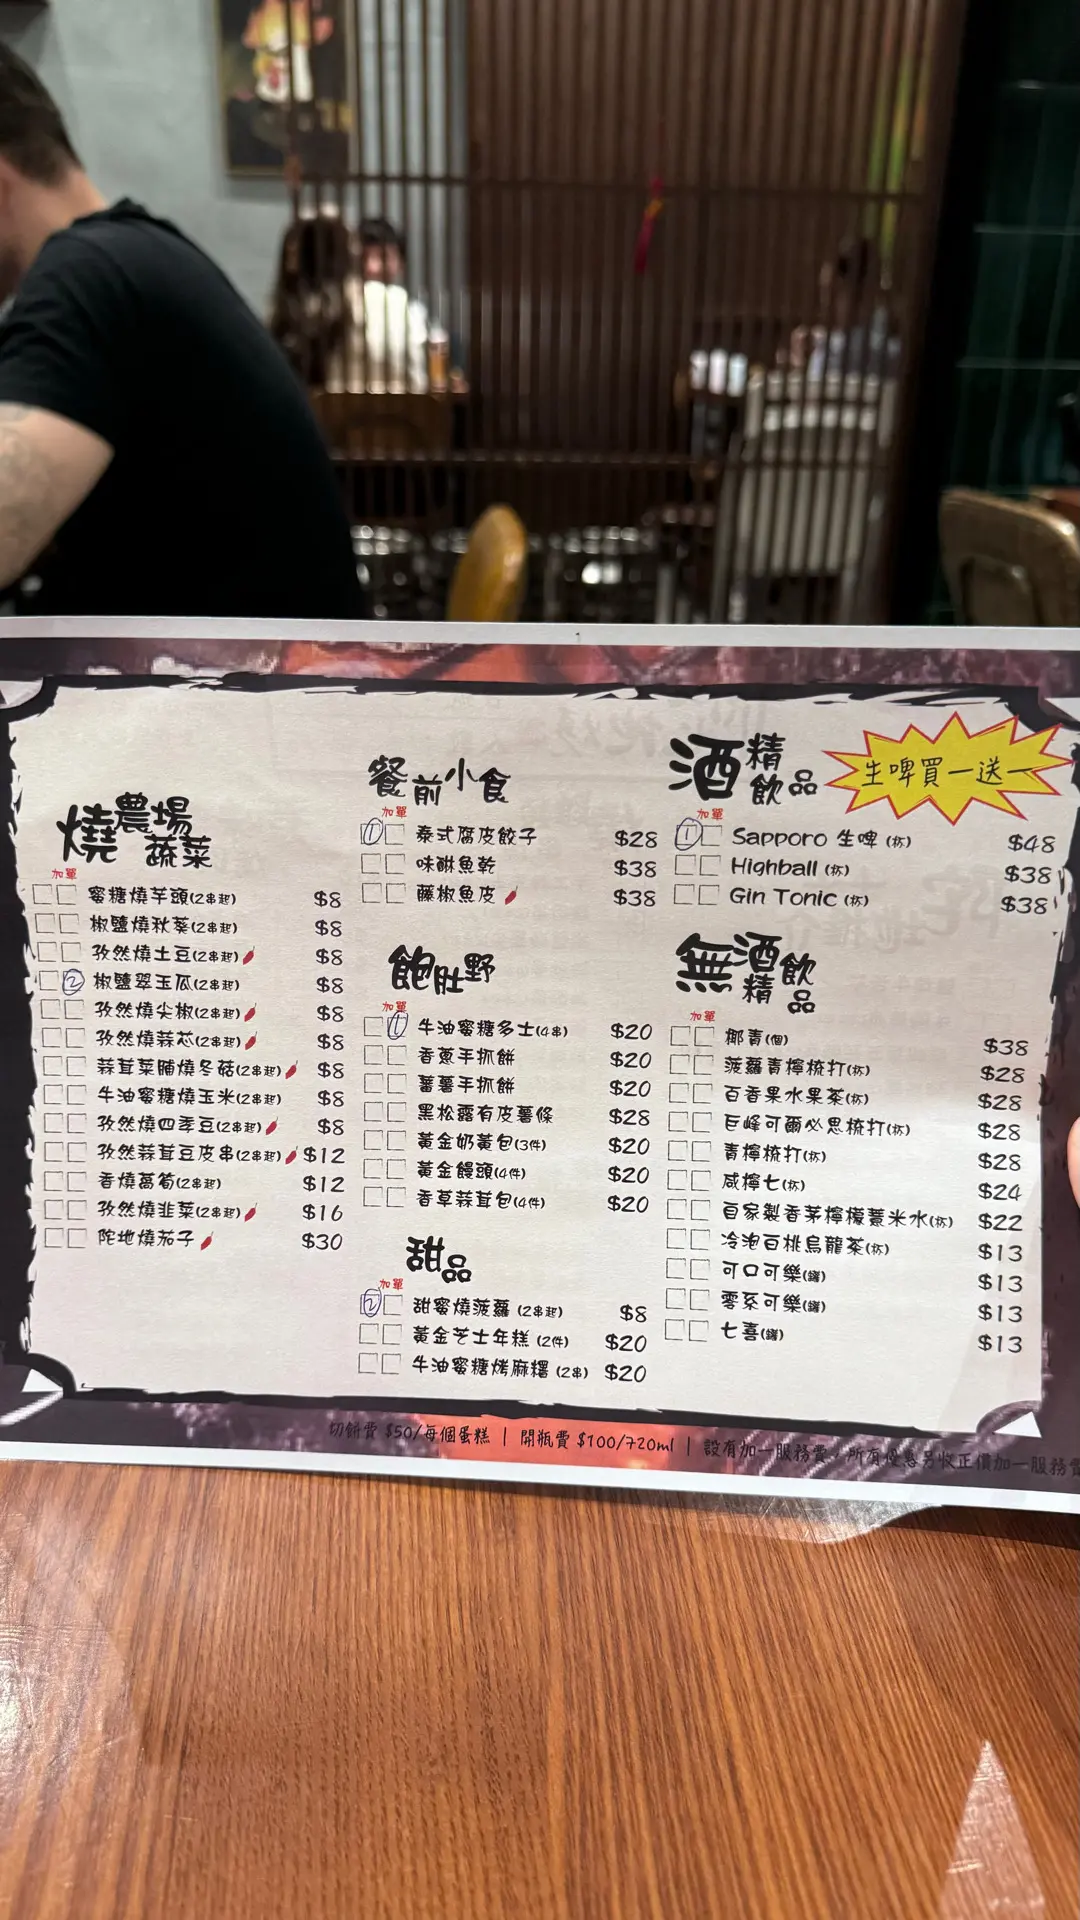 燒農場蔬菜
加單
蜜糖燒芋頭(2串起) $8
椒鹽燒秋葵(2串起) $8
孜然燒土豆(2串起) $8
② 椒鹽翠玉瓜(2串起) $8
孜然燒尖椒(2串起) $8
孜然燒蒜芯(2串起) $8
蒜茸菜脯燒冬菇(2串起) $8
牛油蜜糖燒玉米(2串起) $8
孜然燒四季豆(2串起) $8
孜然蒜茸豆皮串(2串起) $12
香燒萵筍(2串起) $12
孜然燒韭菜(2串起) $16
陀地燒茄子 $30
餐前小食
加單
① 泰式腐皮餃子 $28
味醂魚乾 $38
藤椒魚皮 $38
飽肚野
加單
① 牛油蜜糖多士(4串) $20
香蔥手抓餅 $20
蕃薯手抓餅 $20
黑松露有皮薯條 $28
黃金奶黃包(3件) $20
黃金饅頭(4件) $20
香草蒜茸包(4件) $20
甜品
加單
② 甜蜜燒菠蘿(2串起) $8
黃金芝士年糕(2件) $20
牛油蜜糖烤麻糬(2串) $20
酒精飲品
生啤買一送一
加單
① Sapporo 生啤(杯) $48
Highball (杯) $38
Gin Tonic (杯) $38
無酒精飲品
加單
椰青(個) $38
菠蘿青檸梳打(杯) $28
百香果水果茶(杯) $28
巨峰可爾必思梳打(杯) $28
青檸梳打(杯) $28
咸檸七(杯) $24
自家製香茅檸檬薏米水(杯) $22
冷泡白桃烏龍茶(杯) $13
可口可樂(罐) $13
零系可樂(罐) $13
七喜(罐) $13
切餅費 $50/每個蛋糕 | 開瓶費 $100/720ml | 設有加一服務費,所有優惠另收正價加一服務費